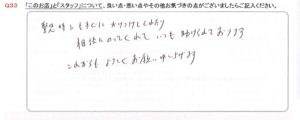 Q33 「このお店」と「スタッフ」について、良い点・悪い点やその他お気づきの点がございましたらご記入ください。
緊急時にもすぐにかけつけてくれたり
相談にのってくれて いつも助けてくれております
これからも よろしくお願い申し上げます